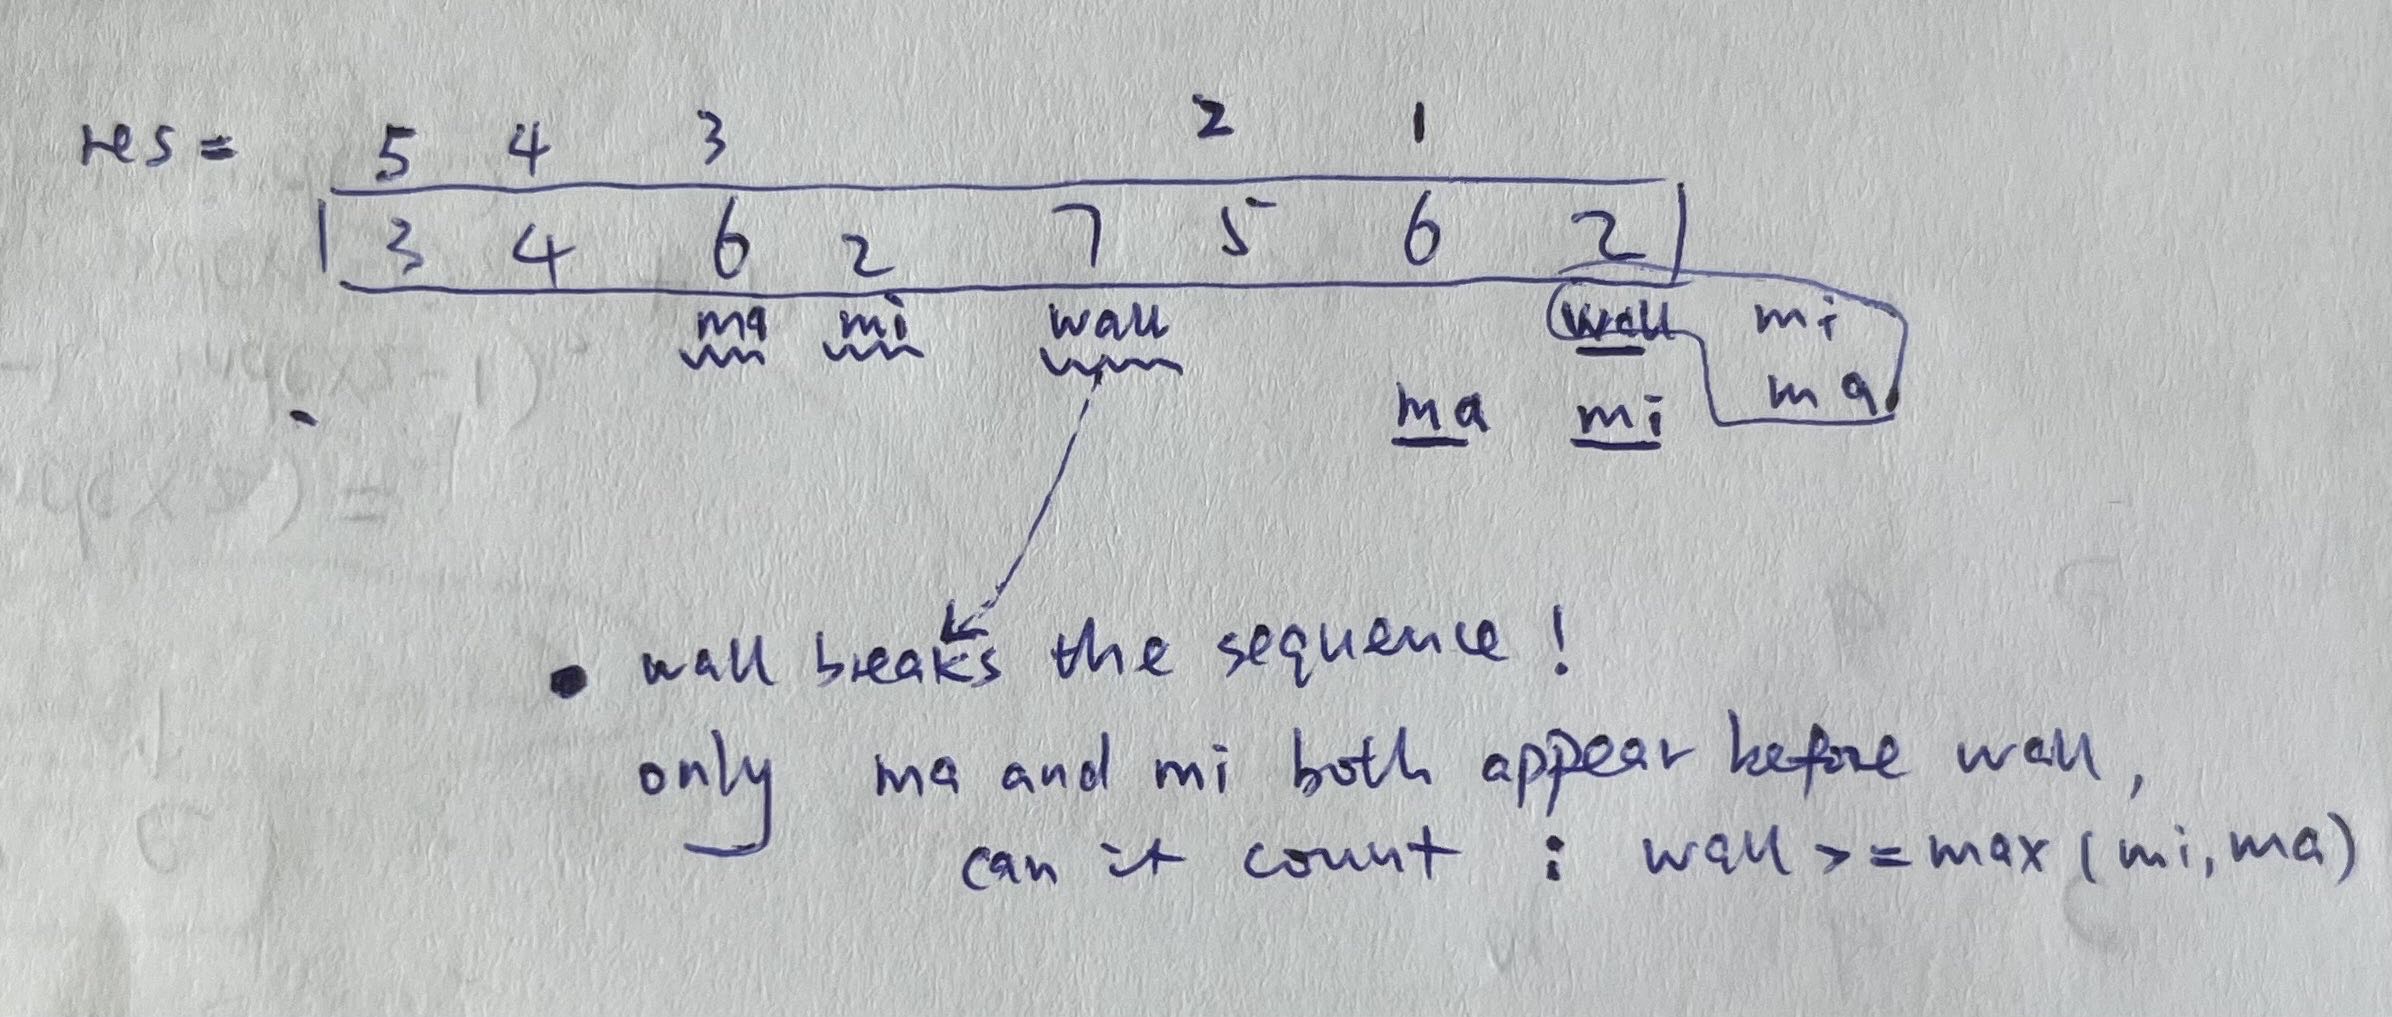 res = 5 4 3 2 1
3 4 6 2 7 5 6 2
ma mi wall wall mi
ma mi ma
wall breaks the sequence!
only ma and mi both appear before wall,
can it count : wall >= max (mi, ma)